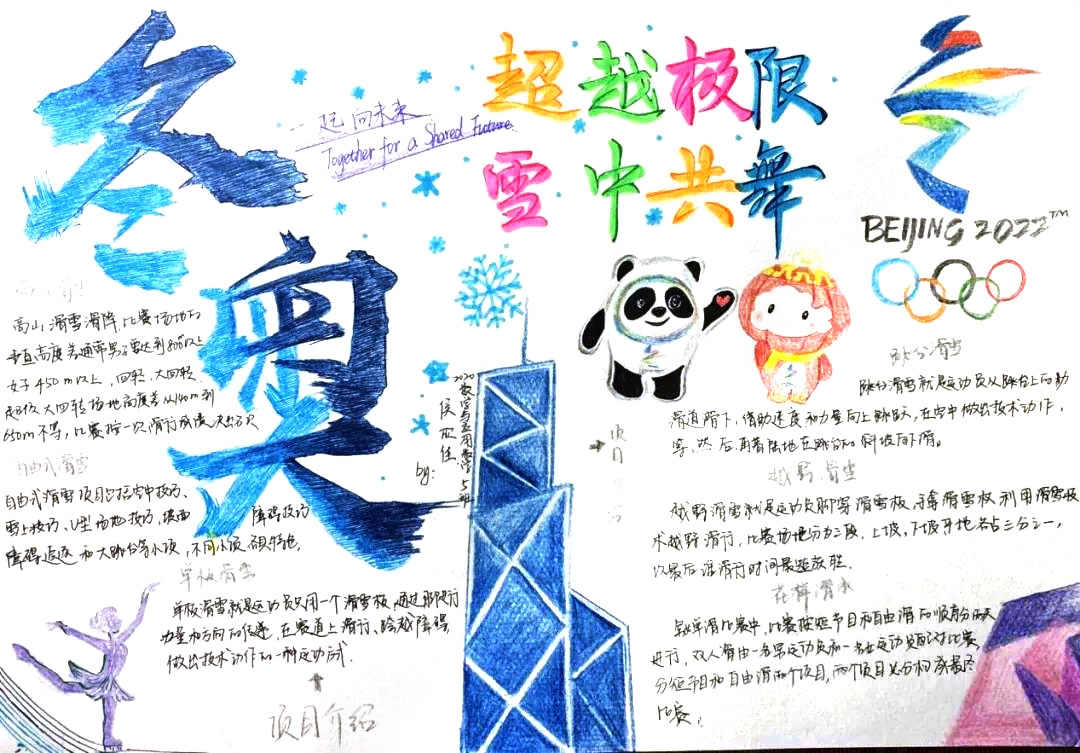 冬
奥
一起向未来
Together for a Shared Future
超越极限
雪中共舞
BEIJING 2022™
高山滑雪
高山滑雪滑降,比赛场地的
垂直高度差通常男子要达到800m以上
女子450m以上,回转、大回转、
超级大回转场地高度差从140m到
650m不等,比赛按一次滑行成绩决出名次
自由式滑雪
自由式滑雪项目包括空中技巧、
雪上技巧、U型场地技巧、坡面障碍技巧
障碍追逐和大跳台等小项,不同小项
单板滑雪
单板滑雪就是运动员只用一个滑雪板,通过
力量和方向的传递,在赛道上滑行、跨越障碍
做出技术动作的一种运动方式.
项目介绍
by:
2020数学与应用数学5班
跳台滑雪
跳台滑雪就是运动员从跳台上的助
滑道滑下,借助速度和力量向上跳跃,在空中做出技术动作,
等,然后再着陆地在跳台的斜坡间滑。
项目
越野滑雪
越野滑雪就是运动员脚穿滑雪板,手拿滑雪杖利用滑雪技
术越野滑行,比赛场地分为三段,上坡,下坡平地各占三分之一,
以最后滑行时间最短放胜.
花样滑冰
比赛中,比赛按短节目和自由滑的顺序分两天
进行,双人滑由一名男运动员和一名女运动员配对比赛
分短节目和自由滑两个项目,两个项目总分构成最终
比赛。